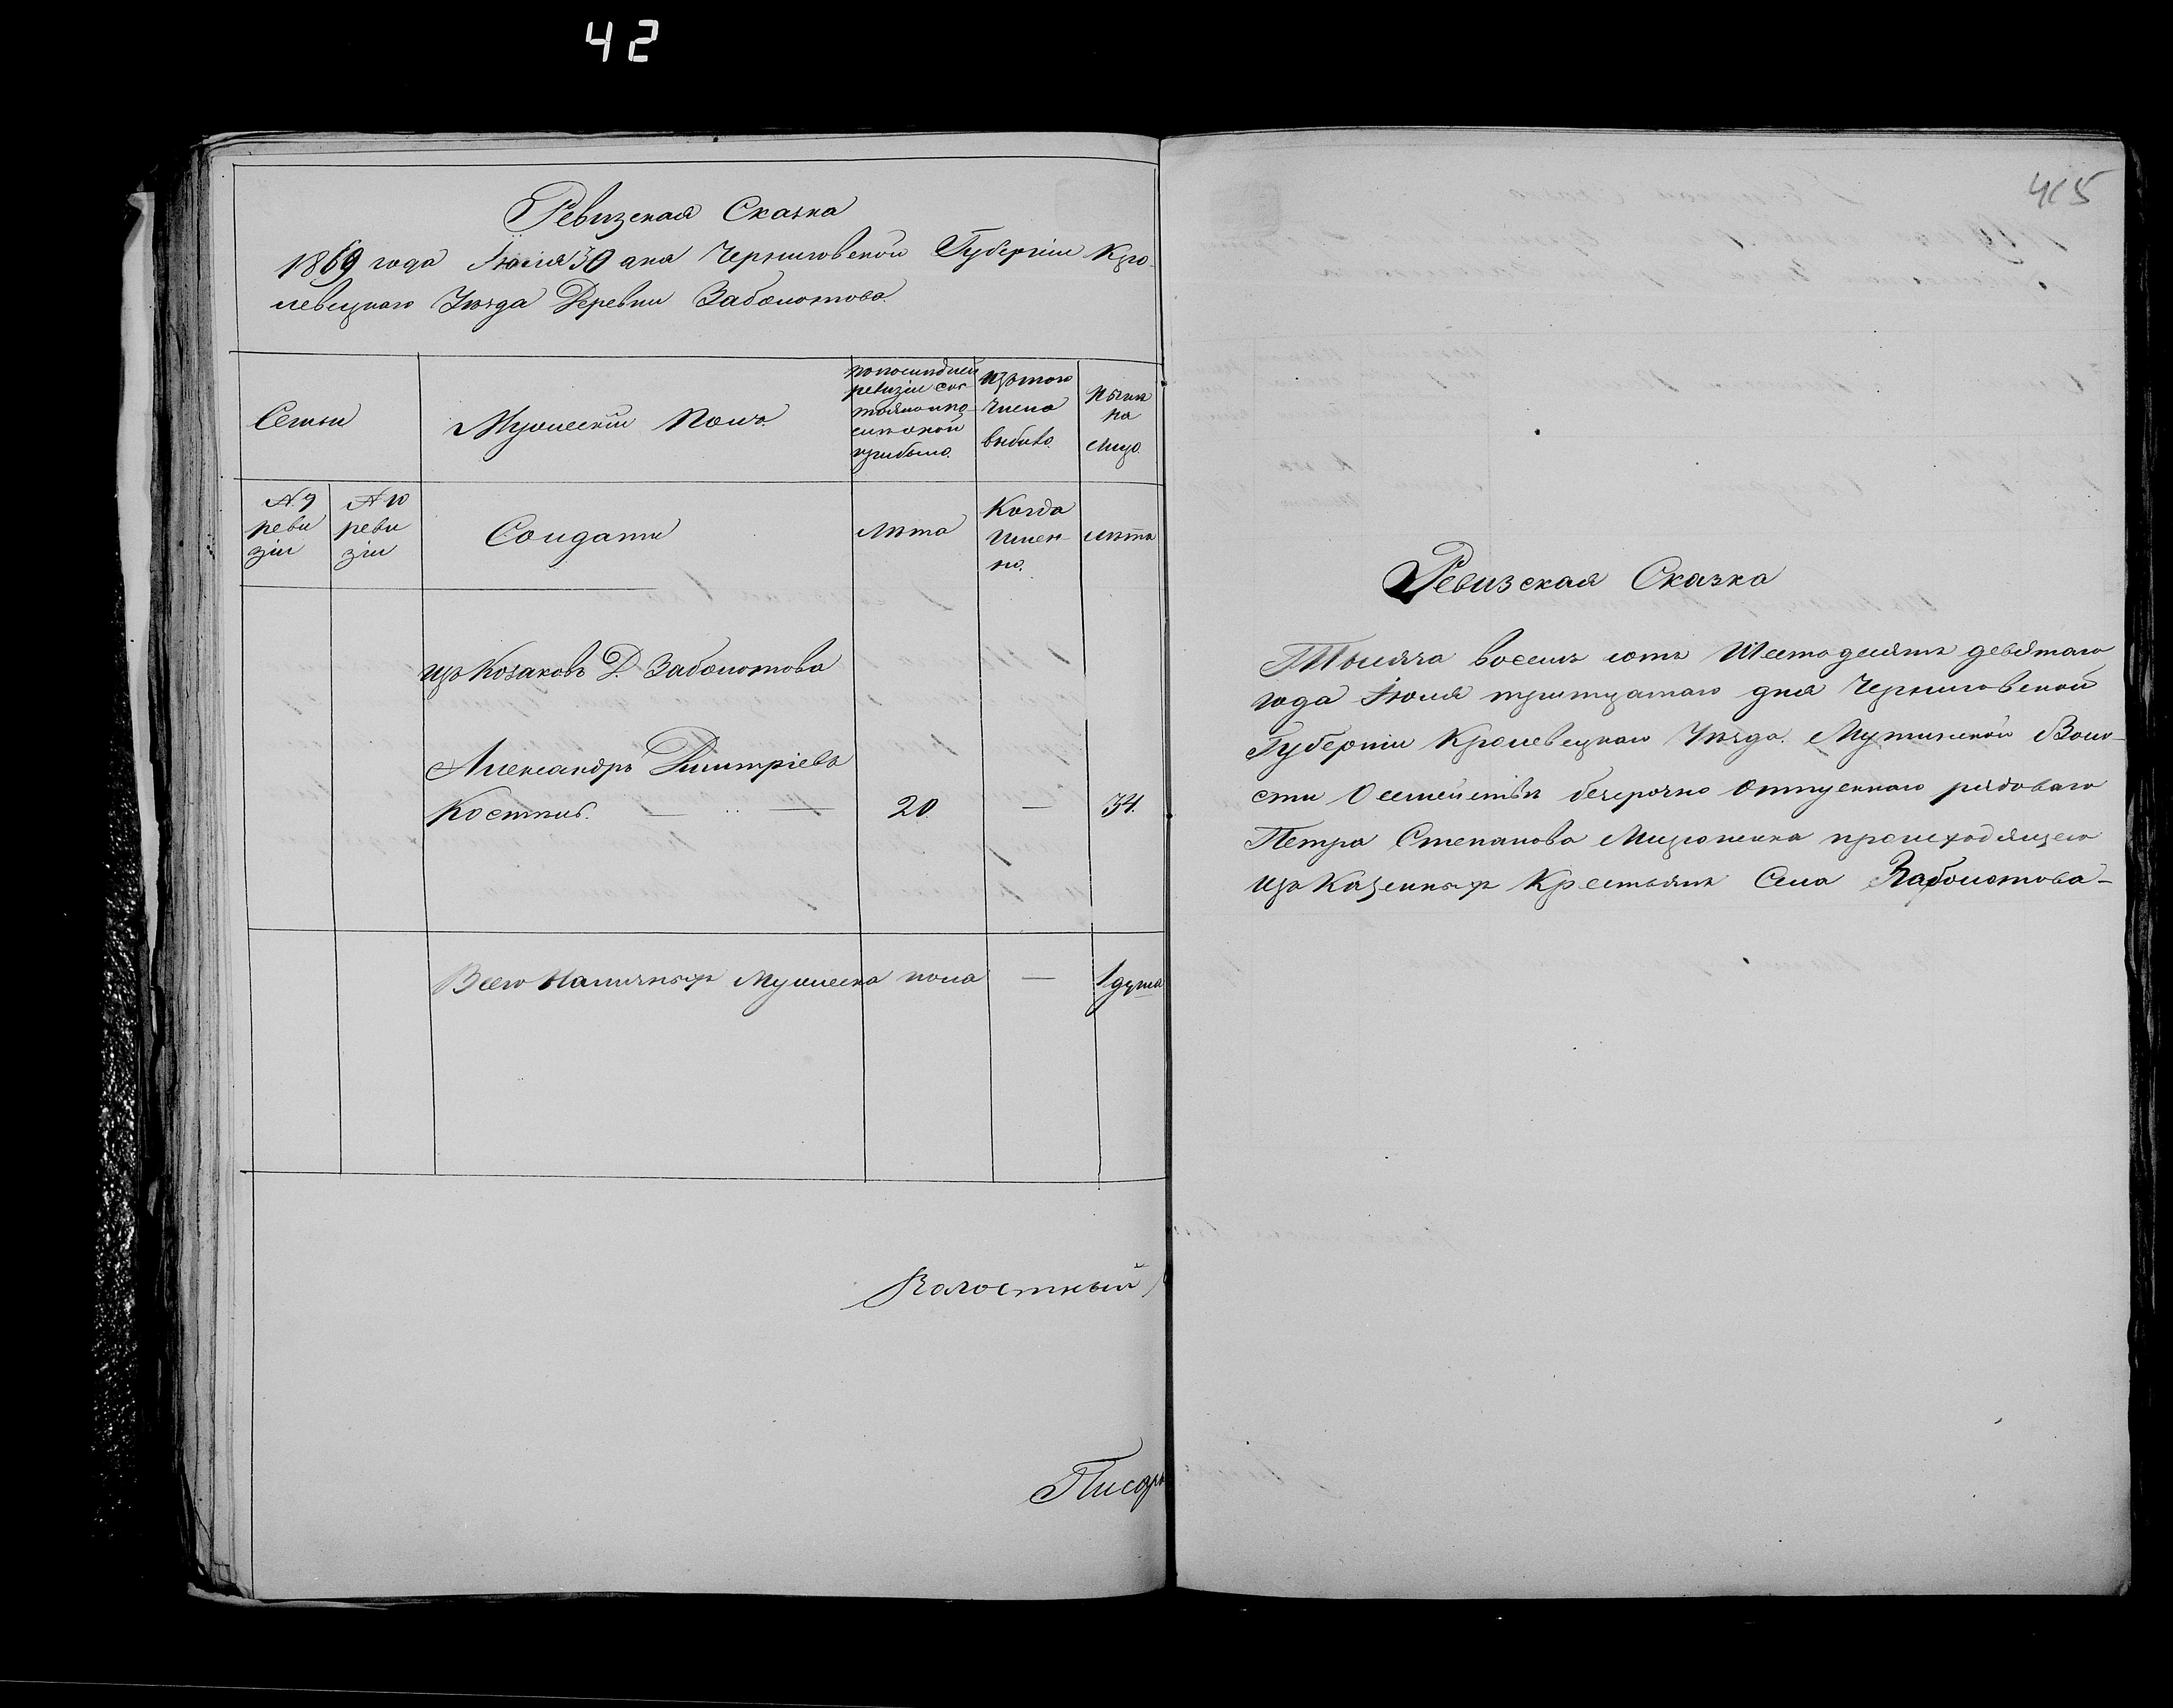 42
Ревизская Сказка
1869 года Июля 30 дня Черниговской Губернии Кро-
левецкаго Уѣзда Деревни Заболотова.
Семьи
Мужескій Полъ.
по последней
ревизіи сос-
тояло и по-
сле оной
прибыло.
Изъ того
числа
выбыло.
Нынѣ
на
лицо.
№ 9
реви
зіи
№ 10
реви
зіи
Солдаты
Лѣта
Когда
имен-
но.
лѣта
изъ Козаковъ Д. Заболотова
Александръ Дмитріевъ
20. — 34.
Всего Наличныхъ Мужеска пола — 1 душа
Волостный
Писарь
415
Ревизская Сказка
Тысяча восемь сотъ Шестьдесятъ девятаго
года Іюля тритцатаго дня Черниговской
Губерніи Кролевецкаго Уѣзда. Мутинской Воло-
сти О семействѣ безсрочно отпускнаго рядоваго
Петра Степанова происходящего
изъ Казенныхъ Крестьянъ Села Заболотова-